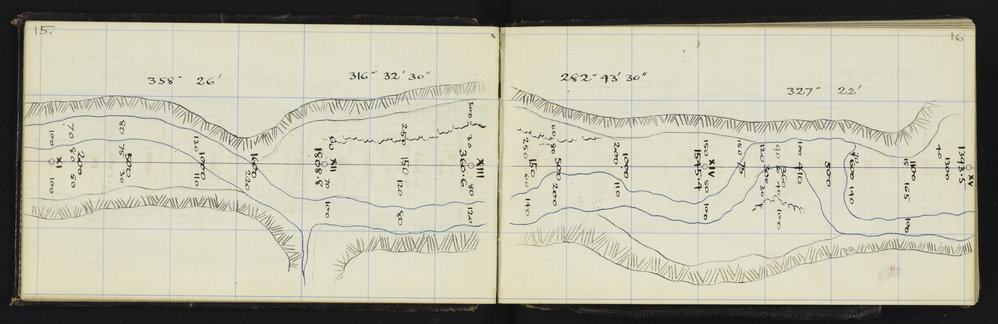 15.
358° 26'
316° 32' 30"
100
70
80
130
250
300
30
XI
200
80
75
500
1000
1600
1808.8
XII
150
360.6
XIII
100
50
30
110
200
70
100
120
80
80
120
16
282° 43' 30"
327° 22'
250
60
90
150
500
200
1000
200
110
60
140
150
XIV
1545.4
50
100
150
75
120
300
30
90
240
360
40
100
100
410
500
140
15
1100
165
100
40
1200
1393.5
XV